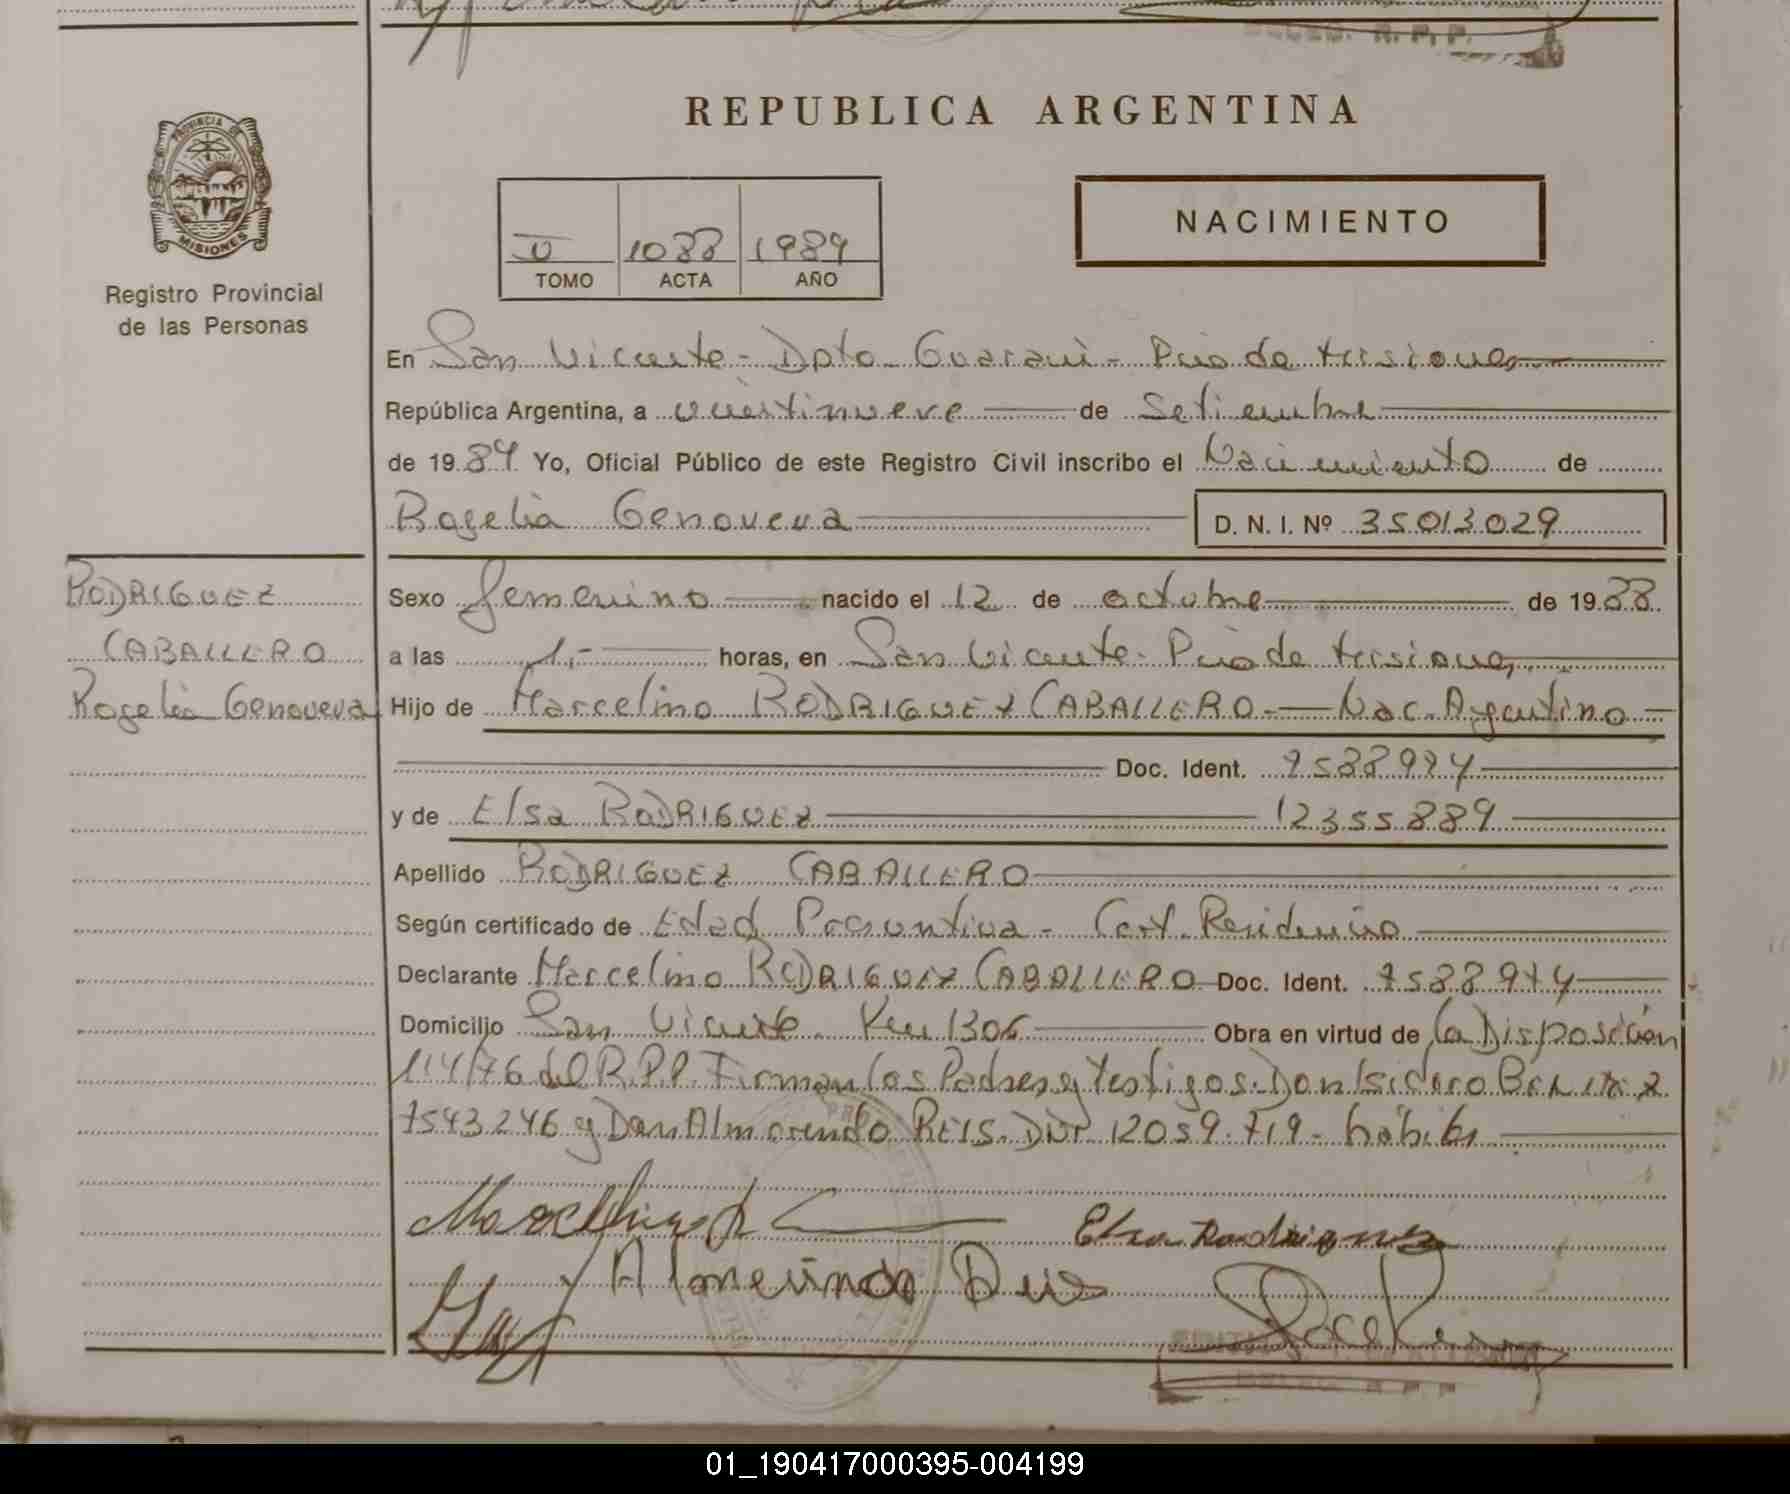 DELEG. R. P. P.
PROVINCIA DE
MISIONES
Registro Provincial
de las Personas
REPUBLICA ARGENTINA
NACIMIENTO
V 1088 1989
TOMO ACTA AÑO
En San Vicente - Dpto. Guaraní - Pcia de Misiones
República Argentina, a veintinueve de Setiembre
de 1989 Yo, Oficial Público de este Registro Civil inscribo el Nacimiento de
Rogelia Genoveva D. N. I. Nº 35013029
RODRIGUEZ
CABALLERO
Rogelia Genoveva
Sexo femenino nacido el 12 de octubre de 1988
a las 1,- horas, en San Vicente - Pcia de Misiones
Hijo de Marcelino RODRIGUEZ CABALLERO - Nac. Argentino
Doc. Ident. 7588974
y de Elsa RODRIGUEZ 12355889
Apellido RODRIGUEZ CABALLERO
Según certificado de Edad Presuntiva - Cert. Residencia
Declarante Marcelino RODRIGUEZ CABALLERO Doc. Ident. 7588974
Domicilio San Vicente - Km 1306 Obra en virtud de la Disposición
114/76 del R.P.P. Firman los Padres y Testigos. Don Isidoro
7543246 y Don Almerindo REIS. DNI 12059.719 - hábiles
Elsa Rodriguez
Almerindo Reis
DELEG. R. P. P.
01_190417000395-004199